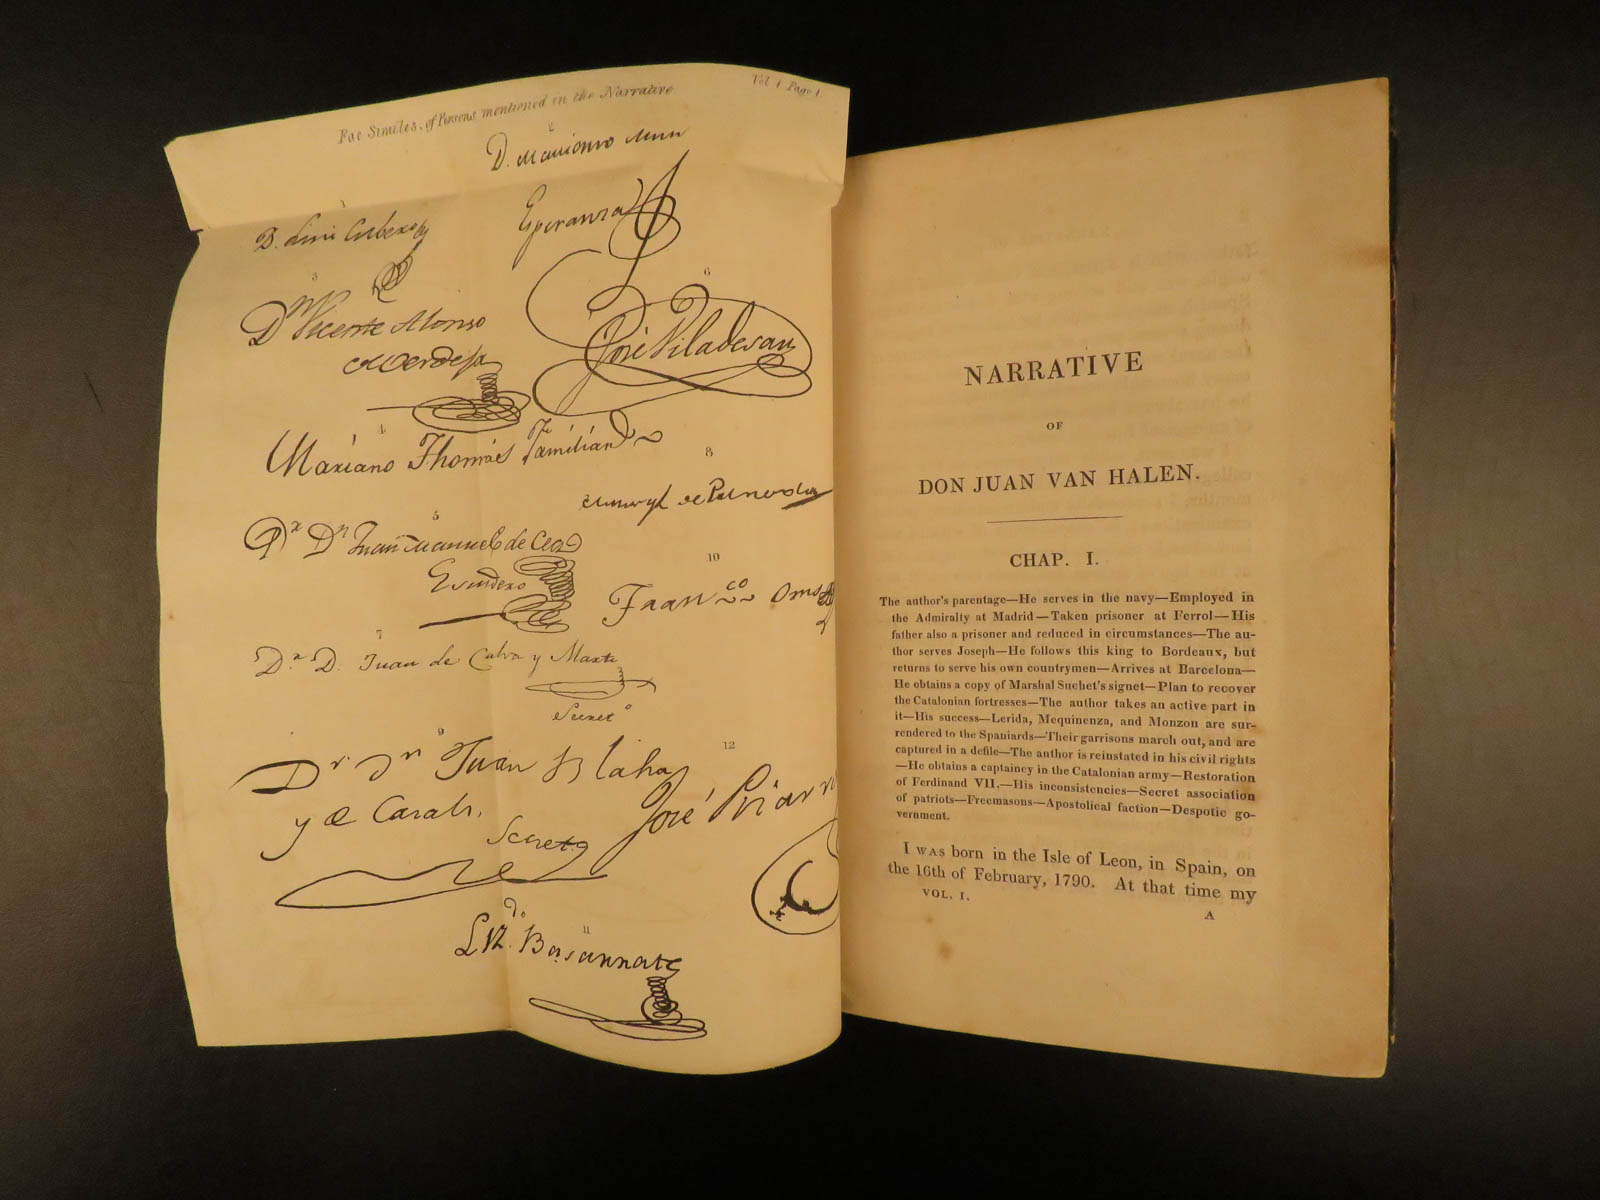 Fac Similes, of Persons mentioned in the Narrative
Vol 1 Page 1.
2
D. Mariano
Esperanza
1
D. Luis
3
Dn Vicente Alonso
de Verdeja
6
José Viladesau
4
Mariano Thomás Familiar
8
de
5
Dn Juan Manuel de Cea
Escudero
10
Franco Oms
7
Dn D. Juan de Calva y Marti
Secreto
9
Dr Dn Juan Blaha
y de Casals.
Secreto
12
José
11
Basannate
NARRATIVE
OF
DON JUAN VAN HALEN.
CHAP. I.
The author's parentage—He serves in the navy—Employed in
the Admiralty at Madrid—Taken prisoner at Ferrol—His
father also a prisoner and reduced in circumstances—The au-
thor serves Joseph—He follows this king to Bordeaux, but
returns to serve his own countrymen—Arrives at Barcelona—
He obtains a copy of Marshal Suchet's signet—Plan to recover
the Catalonian fortresses—The author takes an active part in
it—His success—Lerida, Mequinenza, and Monzon are sur-
rendered to the Spaniards—Their garrisons march out, and are
captured in a defile—The author is reinstated in his civil rights
—He obtains a captaincy in the Catalonian army—Restoration
of Ferdinand VII.—His inconsistencies—Secret association
of patriots—Freemasons—Apostolical faction—Despotic go-
vernment.
I WAS born in the Isle of Leon, in Spain, on
the 16th of February, 1790. At that time my
VOL. I.
A